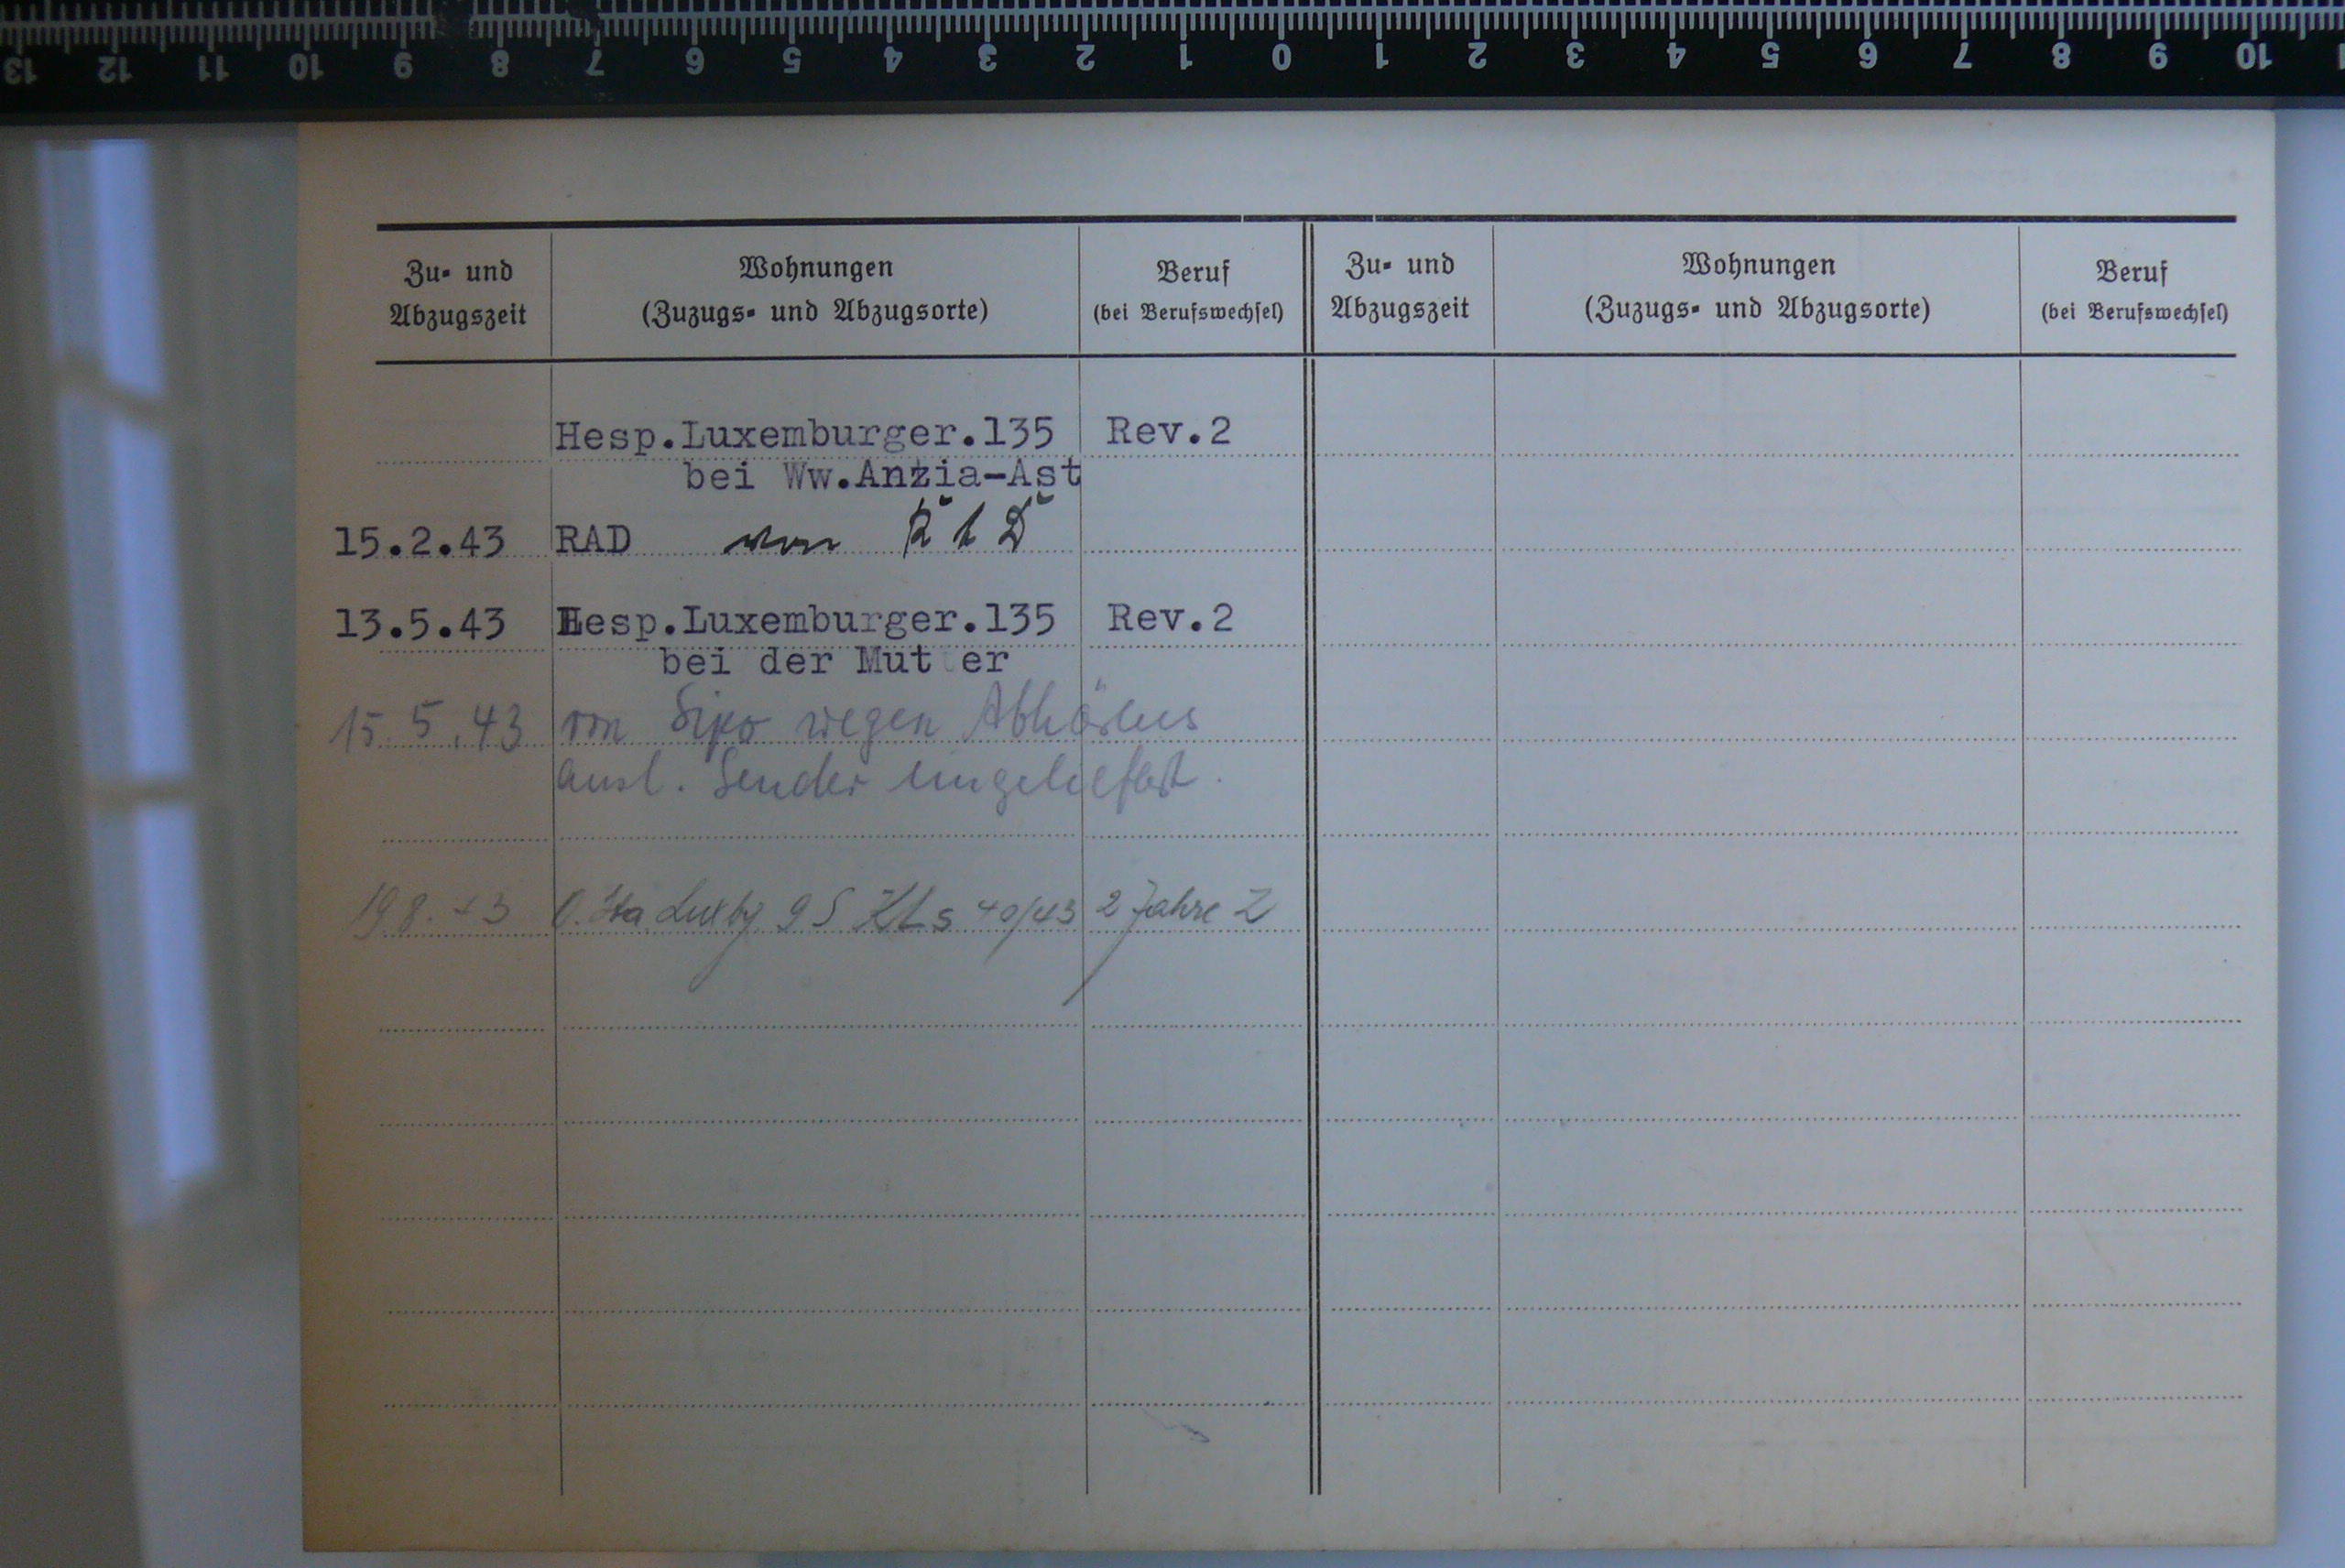 13 12 11 10 9 8 7 6 5 4 3 2 1 0 1 2 3 4 5 6 7 8 9 10
Zu- und Abzugszeit
Wohnungen
(Zuzugs- und Abzugsorte)
Beruf
(bei Berufswechsel)
Zu- und Abzugszeit
Wohnungen
(Zuzugs- und Abzugsorte)
Beruf
(bei Berufswechsel)
Hesp.Luxemburger.135 Rev.2
bei Ww.Anzia-Ast
15.2.43 RAD von
13.5.43 Hesp.Luxemburger.135 Rev.2
bei der Mutter
15.5.43 von Sipo wegen Abhörens
ausl. Sender eingeliefert.
19.8.43 O.Sta Luxbg. 9 S KLs 40/43 2 Jahre Z